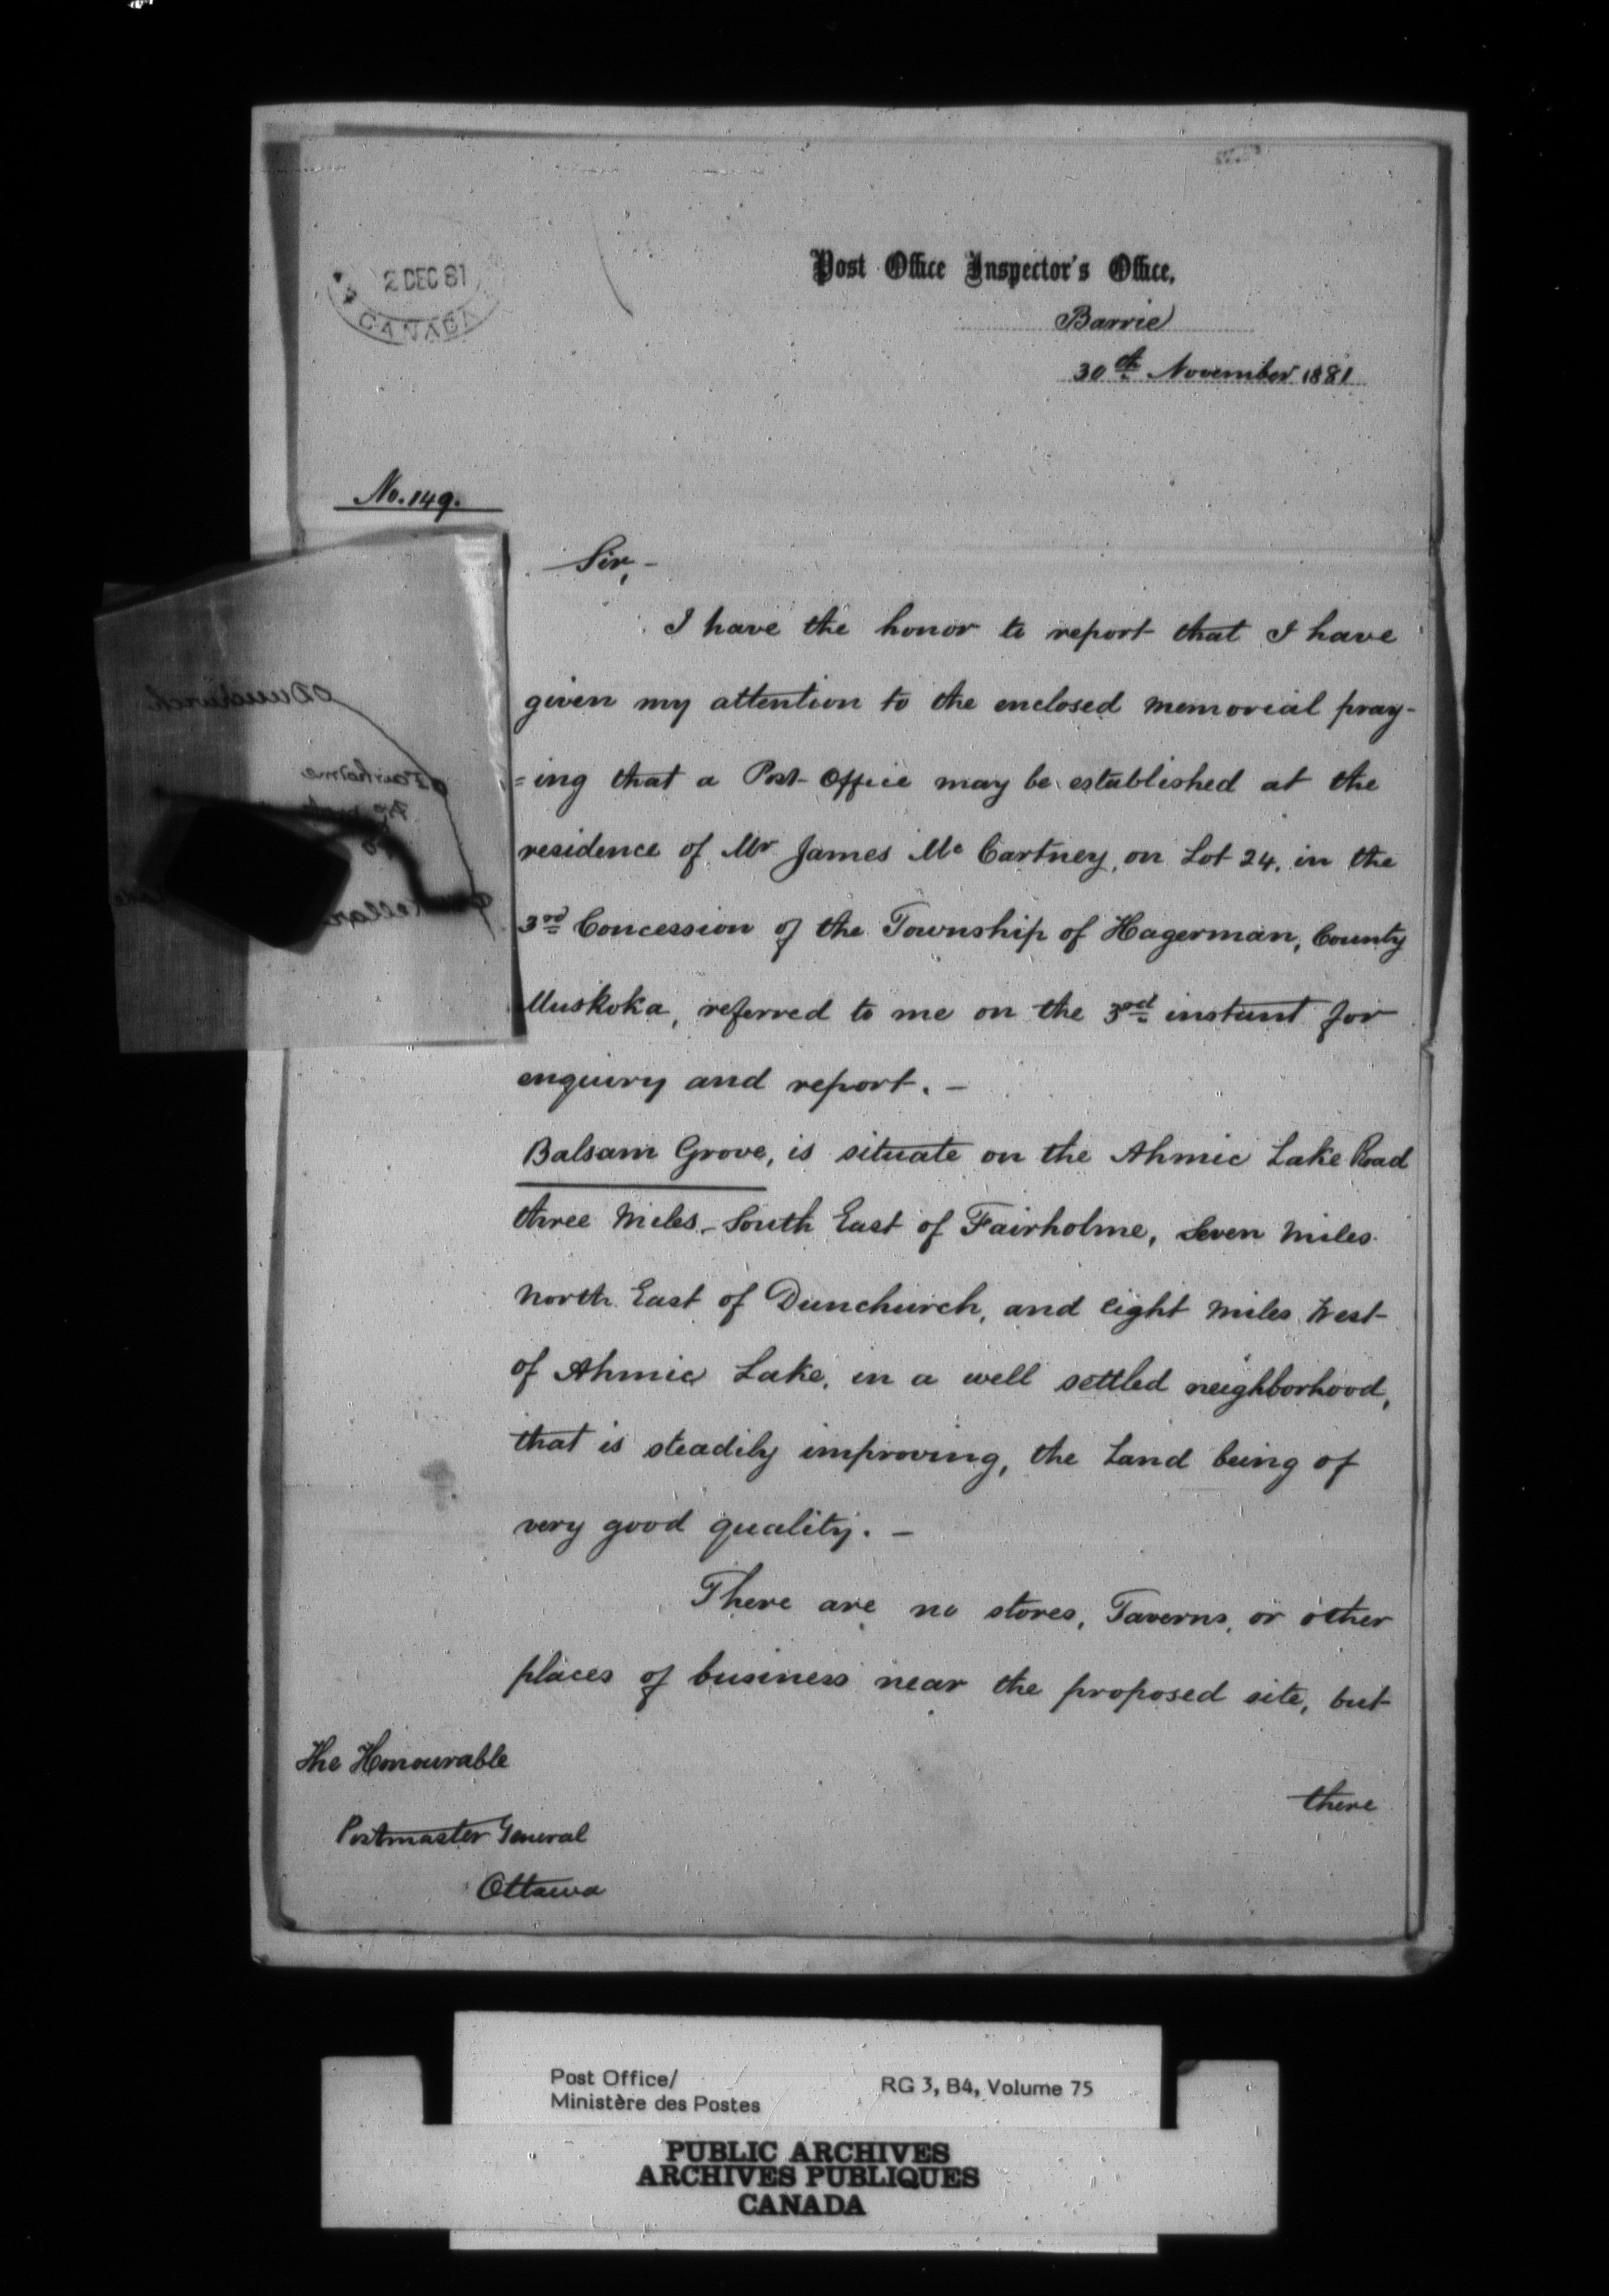 2 DEC 81
CANADA
Post Office Inspector's Office,
Barrie
30th November 1881
No. 149.
Sir,-
I have the honor to report that I have
given my attention to the enclosed memorial pray-
=ing that a Post Office may be established at the
residence of Mr James Mc Cartney, on Lot 24, in the
3rd Concession of the Township of Hagerman, County
Muskoka, referred to me on the 3rd instant for
enquiry and report. -
Balsam Grove, is situate on the Ahmic Lake Road
three Miles South East of Fairholme, Seven Miles
North East of Dunchurch, and eight Miles West
of Ahmic Lake, in a well settled neighborhood,
that is steadily improving, the Land being of
very good quality. -
There are no stores, Taverns, or other
places of business near the proposed site, but
there
The Honourable
Postmaster General
Ottawa
Dunchurch
Fairholme
Post Office/
Ministère des Postes
RG 3, B4, Volume 75
PUBLIC ARCHIVES
ARCHIVES PUBLIQUES
CANADA